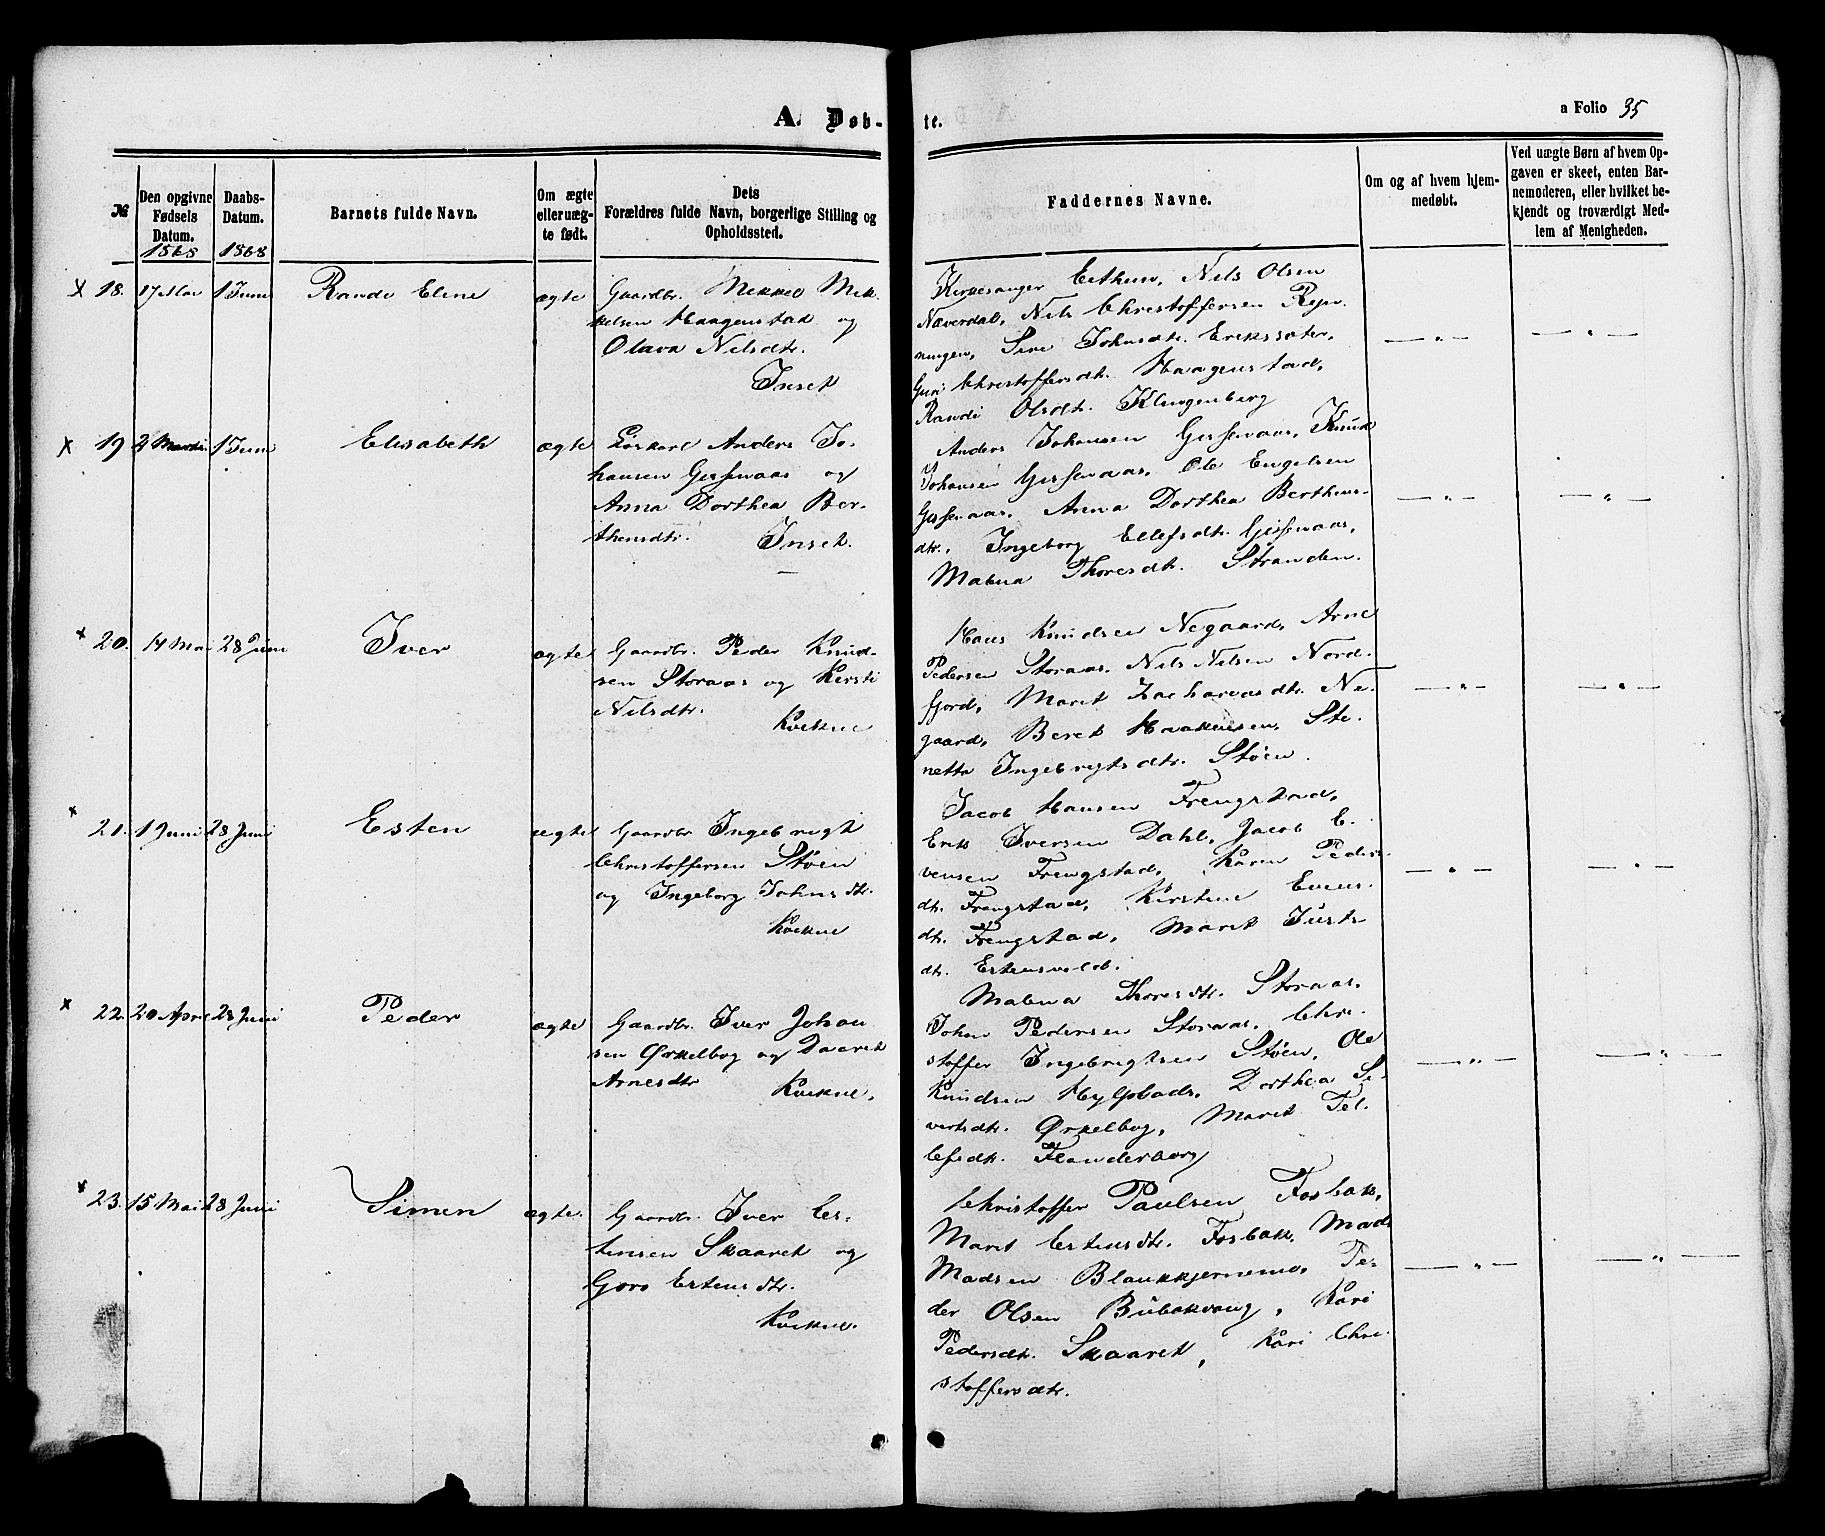 A. Døb-
te.
a Folio 35
№
Den opgivne
Fødsels
Datum.
1868
Daabs-
Datum.
1868
Barnets fulde Navn.
Om ægte
eller uæg-
te født.
Dets
Forældres fulde Navn, borgerlige Stilling og
Opholdssted.
Faddernes Navne.
Om og af hvem hjem-
medøbt.
Ved uægte Børn af hvem Op-
gaven er skeet, enten Bar-
nemoderen, eller hvilket be-
kjendt og troværdigt Med-
lem af Menigheden.
× 18. 17 Mai 1 Juni Randi Eline ægte
Gaardbr. Mikkel Mik-
kelsen Haagenstad og
Olava Nilsdtr.
Inset
Kirkesanger Eithun, Nils Olsen
Næverdal, Nils Christoffersen
ningen, Siri Johnsdtr. Erikssæter,
Guri Christoffersdtr. Haagenstad,
Randi Olsdtr. Klingenberg
— " — — " —
× 19 2 1 Juni Elisabeth ægte
Løskarl Anders Jo-
hansen Gissenaas og
Anna Dorthea Ber-
thensdtr. Inset.
Anders Johansen Gissenaas, Knud
Johansen Gissenaas, Ole Engelsen
Gissenaas, Anna Dorthea Berthens-
dtr., Ingeborg Ellefsdtr. Gissenaas,
Malena Thoresdtr. Stranden.
— " — — " —
× 20. 14 Mai 28 Juni Iver ægte
Gaardbr. Peder Knud-
sen Storaas og Kirsti
Nilsdtr. Kvikne
Hans Knudsen Negaard, Arne
Pedersen Storaas, Nils Nilsen Nord-
fjord, Marit Zachariasdtr. Ne-
gaard, Beret Haakensen, Ste-
netta Ingebrigtsdtr. Støen.
— " — — " —
× 21. 1 Juni 28 Juni Esten ægte
Gaardbr Ingebrigt
Christoffersen Støen
og Ingeborg Johnsdtr.
Kvikne
Jacob Hansen Frengstad,
Erik Iversen Dahl, Jacob E-
vensen Frengstad, Karen Peders-
dtr. Frengstad, Kirstine Evens-
dtr. Frengstad, Marit Justs-
dtr. Estensvold.
— " — — " —
× 22. 20 April 28 Juni Peder ægte
Gaardbr. Iver Johan
sen Ørkelbog og Daaret
Arnesdtr Kvikne.
Malena Thoresdtr. Storaas,
Johan Pedersen Storaas, Chri-
stoffer Ingebrigtsen Støen, Ole
Knudsen Hylpbads, Dorthea Si-
vertsdtr. Ørkelbog, Marit Tel-
lefsdtr. Flanderborg
— " — — " —
× 23. 15 Mai 28 Juni Simen ægte.
Gaardbr. Iver Es-
tensen Skaaret og
Goro Estensdtr.
Kvikne.
Christoffer Paulsen Fosbak,
Marit Estensdtr. Fosbak, Mads
Madsen Blankkjernmo, Pe-
der Olsen Bubakvang, Kari
Pedersdtr. Skaaret, Kari Chri-
stoffersdtr.
— " — — " —